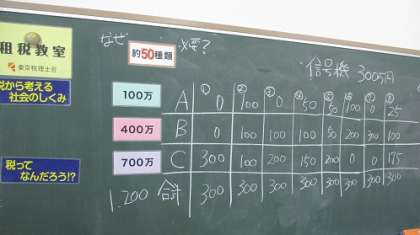 なぜ 必要?
約50種類
租税教室
東京税理士会
税から考える
社会のしくみ
税って
なんだろう!?
信号機 300万円
① ② ③ ④ ⑤ ⑥ ⑦ ⑧
100万 A 0 100 0 50 50 100 0 25
400万 B 0 100 100 100 50 200 300 100
700万 C 300 100 200 150 200 0 0 175
1,200 合計 300 300 300 300 300 300 300 300